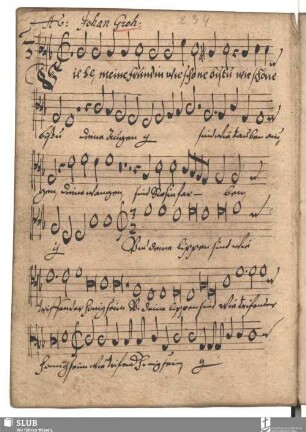 A 6: Johan Groh: 234
Siehe, meine freundin wie schöne bistu wie schöne
bistu deine Augen ij sind wie Tauben aug
gen, deine wangen sind Rosinfar- ben
ij Und deine lippen sind wie
trieffender honigseim Und deine lippen sind wie triefender
honigseim wie triefend honigseim ij
SLUB
Wir führen Wissen.